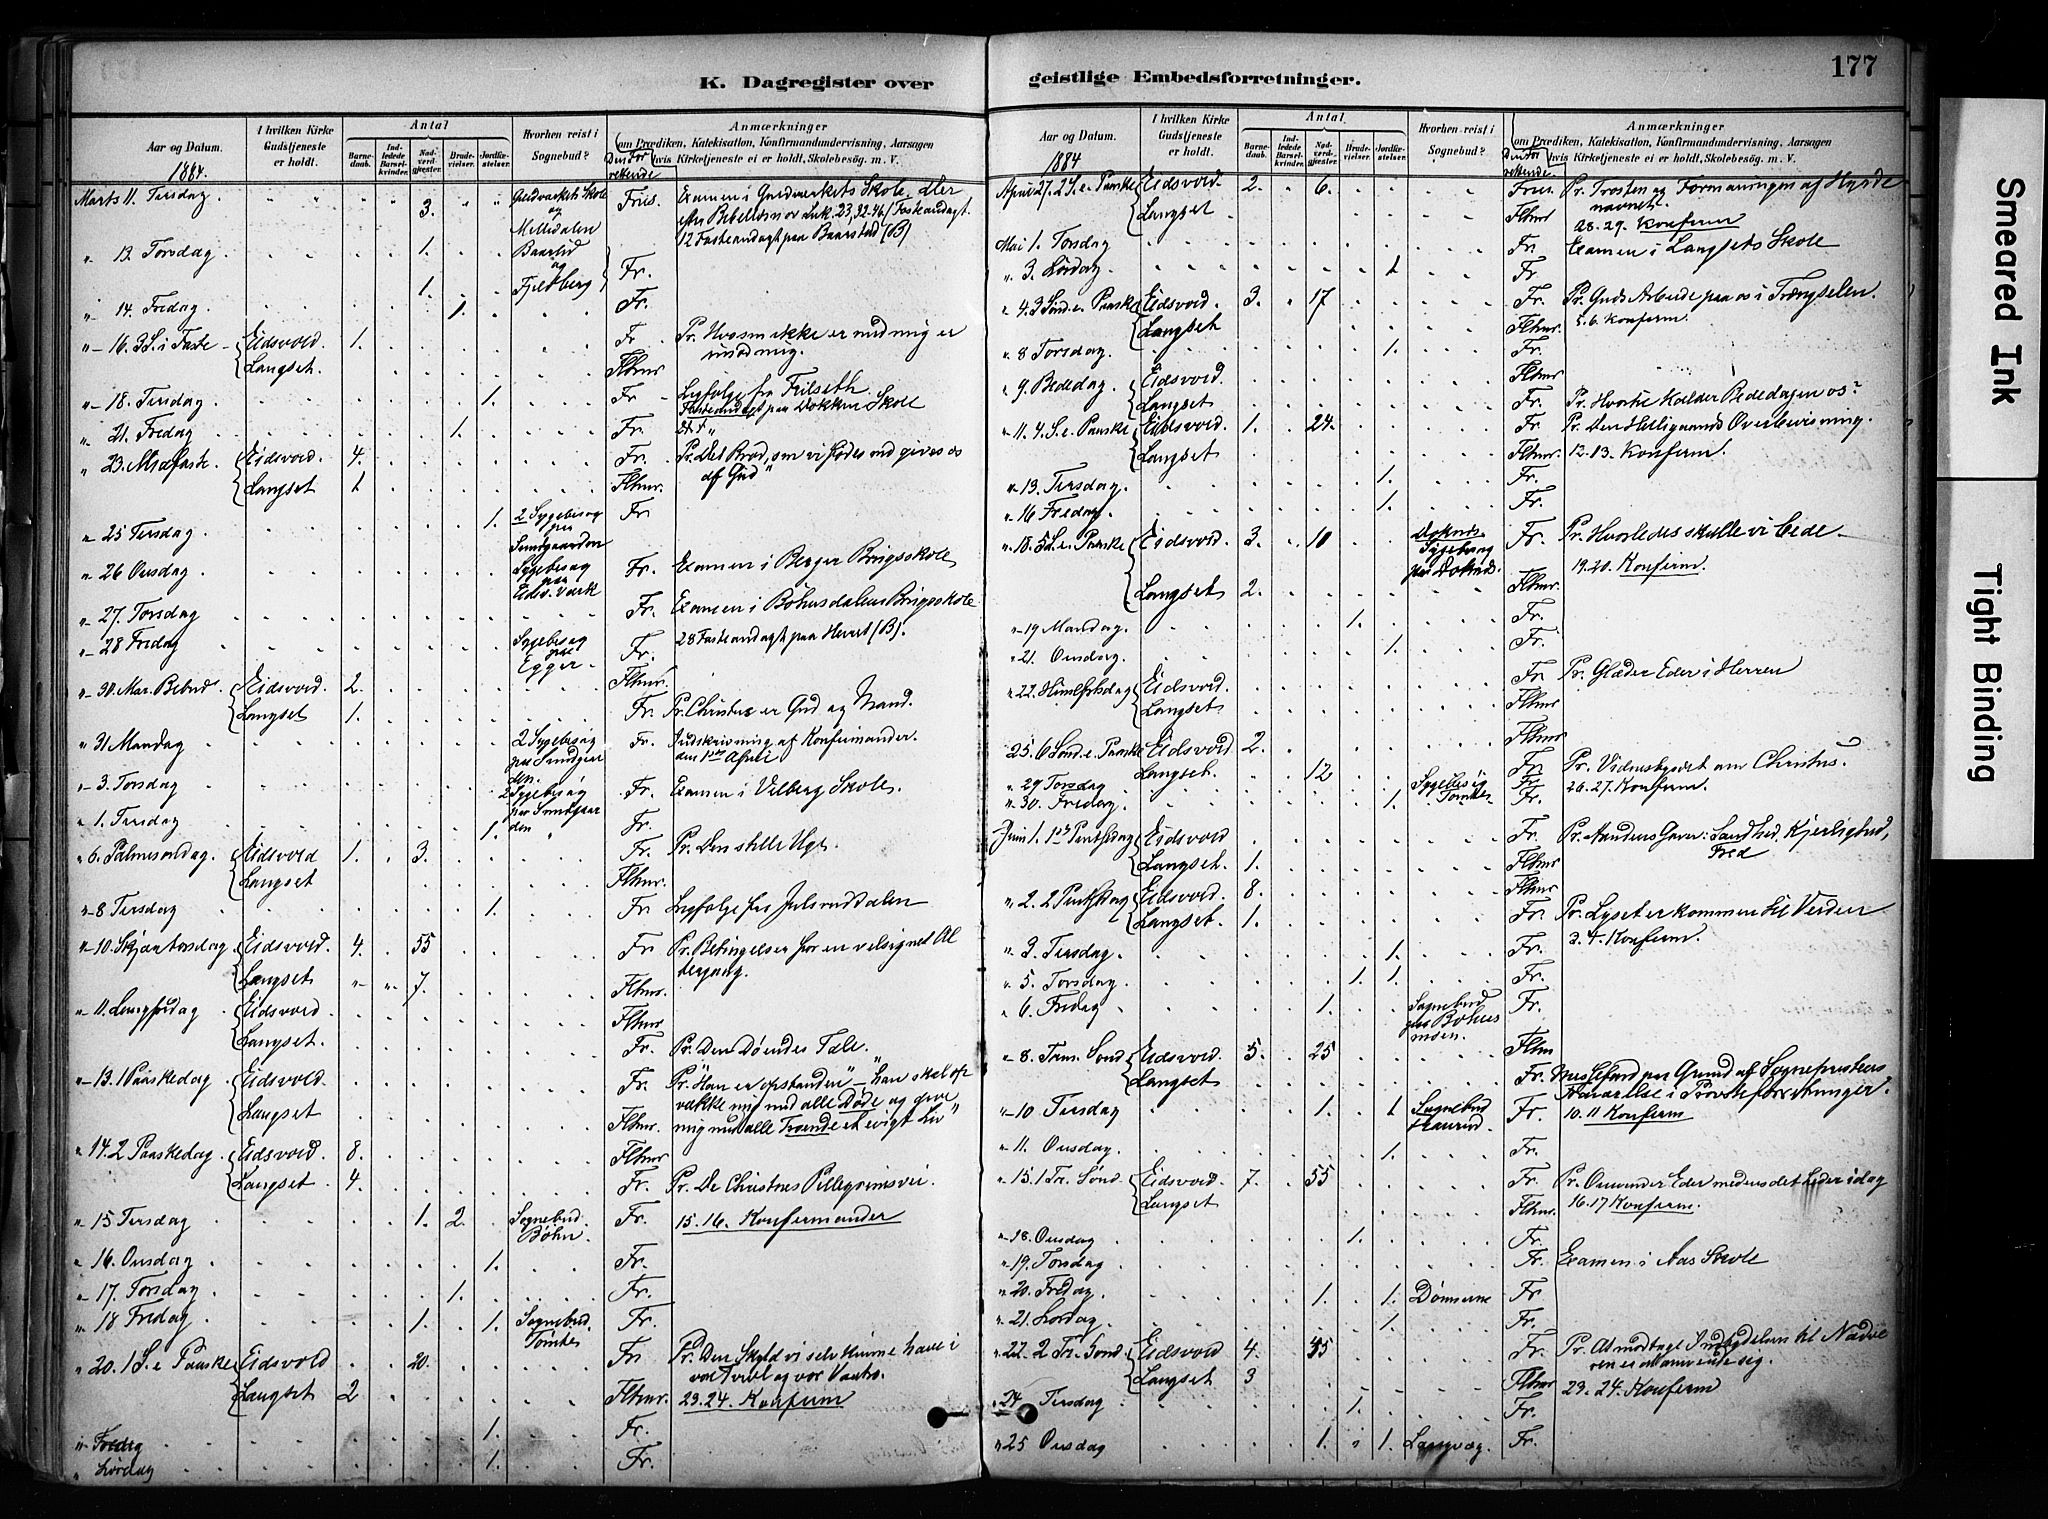 K. Dagregister over
Aar og Datum.
1884.
I hvilken Kirke Gudstjeneste er holdt.
Antal
Barnedaab.
Indledede Barselkvinder.
Nadverdgjester.
Brudevielser.
Jordfæstelser.
Hvorhen reist i Sognebud?
Den Forrettende
Anmærkninger
om Prædiken, Katekisation, Konfirmandundervisning, Aarsagen
hvis Kirketjeneste ei er holdt, Skolebesög m. V.
Marts 11. Tirsdag 3. Guldværkets Skole og Fris. Examen i Guldværkets Skole,
Luk. 23, 32-46 (Fasteandagt.
12 Fasteandagt paa Baarstad (B)
" 13. Torsdag 1. og Fr.
1. Fjeldberg
"- 14. Fredag 1. Fr.
"- 16. 3 S. i Faste Eidsvold. 1. Fr. Pr. Hvo som ikke er med mig er
imod mig.
Langset. Flhmr
"- 18. Tirsdag 1. Fr Ligfølge fra
Fasteandagt paa Dokken Skole
" 21. Fredag 1. Fr.
" 23. Midfaste Eidsvold. 4. Fr. Pr. Det Brød, som vi gives os
af Gud"
Langset 1 Flhmr.
" 25 Tirsdag 1. 2 Sygebesøg paa Fr
" 26 Onsdag Sygebesøg paa Eidsv. Værk Fr. Examen i Berger Brugsskole
"- 27. Torsdag Fr. Examen i Bøhnsdalens Brugsskole
"- 28 Fredag Sygebesøg paa Egger Fr. 28 Fasteandagt paa (B).
"- 30. Mar. Bebud. Eidsvold. 2. Flhmr.
Langset 1. Fr. Pr. Christus er Gud og Mand.
" 31 Mandag 2 Sygebesøg paa Fr. Indskrivning af Konfirmander.
den 1ste April
"- 3. Torsdag Sygebesøg Fr. Examen i Vilberg Skole.
" 1. Tirsdag 1. " Fr.
" 6. Palmesøndag. Eidsvold 1. 3. Fr. Pr. Den stille Uge.
Langset Flhmr.
"-8 Tirsdag 1. Fr Ligfølge fra Julsruddalen
"-10. Skjærtorsdag Eidsvold. 4. 55 Fr. Pr. Betingelser for en velsignet Al
tergang.
Langset " " 7. Flhmr.
"- 11. Langfredag Eidsvold Flhmr
Langset. Fr. Pr. Den Døendes Tale.
"-13. 1 Paaskedag Eidsvold. Fr. Pr. "Han er opstanden" - han skal op
vække mig med alle Døde og give
Langset. Flhmr. mig med alle Troende et evigt Liv"
" 14. 2 Paaskedag Eidsvold 8. Flhmr
Langset 4. Fr. Pr. De Christnes Pillegrimsvei.
" 15 Tirsdag 1. 2. Sognebud. Bøhn Fr. 15. 16. Konfirmander
" 16. Onsdag 1. Fr.
"- 17. Torsdag 1. Fr.
" 18 Fredag 1. 1. Sognebud. Fr.
" 20. 1 S. e Paaske Eidsvold 20. Fr Pr. Den Skyld vi selv kunne have i
vor Tvivl og vor Vantro.
Langset 2 Flhmr. 23. 24. Konfirm
" Fredag 1. Fr.
" Lørdag 1. Fr.
geistlige Embedsforretninger.
177
Aar og Datum.
1884
I hvilken Kirke Gudstjeneste er holdt.
Antal
Barnedaab.
Indledede Barselkvinder.
Nadverdgjester.
Brudevielser.
Jordfæstelser.
Hvorhen reist i Sognebud?
Den Forrettende
Anmærkninger
om Prædiken, Katekisation, Konfirmandundervisning, Aarsagen
hvis Kirketjeneste ei er holdt, Skolebesög m. V.
April 27. 2 S. e. Paaske Eidsvold. 2. 6. Fris. Pr. Trøsten og Formaningen af Hyrde
navnet.
Langset Flhmr 28. 29. Konfirm
Mai 1. Torsdag Fr. Examen i Langsets Skole
" 3. Lørdag 1 Fr.
" 4. 3 Sønd. e. Paaske Eidsvold. 3. 17 Fr. Pr. Guds Arbeide paa os i Trængselen.
Langset Flhmr. 5. 6. Konfirm.
" 8 Torsdag 1. Fr.
" 9. Bededag. Eidsvold. Flhmr.
Langset Fr. Pr. Hvortil kalder Bededagen os?
" 11. 4. S. e. Paaske Eidsvold. 1. 24. Fr. Pr. Den Helligaands Overbevisning.
Langset Flhmr. 12. 13. Konfirm.
"- 13. Tirsdag. 1. Fr.
" 16 Fredag 1. Fr.
" 18. 5 S. e. Paaske Eidsvold. 3. 10 Fr. Pr. Hvorledes skulle vi bede
Langset 2. Flhmr. 19. 20. Konfirm.
"-19 Mandag. 1. Fr.
" 21. Onsdag. 1. Fr.
"- 22. Himelfrtsdag Eidsvold. Fr Pr. Glæder Eder i Herren
Langset. Flhmr
25. 6 Sønd. e. Paaske Eidsvold 2. Flhmr.
Langset. 12 Fr. Pr. Vidnesbyrdet om Christus.
" 29 Torsdag Sygebesøg Fr. 26. 27. Konfirm.
" 30. Fredag 1. Fr.
Juni 1. 1ste Pintsedag Eidsvold Fr. Pr. Aandens Gaver: Sandhed, Kjærlighed,
Fred
Langset 1. Flhmr
" 2. 2 Pintsedag Eidsvold 8. Flhmr
Langset. 1. Fr. Pr. Lyset er kommen til Verden
" 3. Tirsdag. 1. Fr. 3. 4. Konfirm.
" 5. Torsdag 1 1 Fr.
" 6. Fredag 1. Sognebud Fr.
"- 8. Trin. Sønd Eidsvold. 5. 25 Flhm
Langset Fr. Messefald paa Grund af Sognepræstens
Fravælse i Provsteforretninger.
"- 10 Tirsdag 1. 1 Sognebud Fr. 10. 11 Konfirm
" 11. Onsdag 1. Fr.
" 15. 1 Tr. Sønd. Eidsvold 7. 55 Fr. Pr. Omvender Eder medens det heder idag
Langset Flhmr. 16. 17 Konfirm.
"-18. Onsdag 1. Fr.
" 19. Torsdag Fr. Examen i Aas Skole
" 20. Fredag 1. 1. Fr.
" 21. Lørdag 1. Fr.
" 22. 2 Tr. Sønd. Eidsvold 4. 35 Fr. Pr. At modtage Indbydelsen til Nadve
ren er at omvende sig.
Langset 3 Flhmr 23. 24. Konfirm
" 24 Tirsdag 1. Fr.
" 25 Onsdag 1. " 1. Fr.
Smeared Ink
Tight Binding